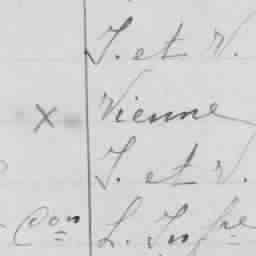 I. et V.
x Vienne
I. et V.
Con L. Infre